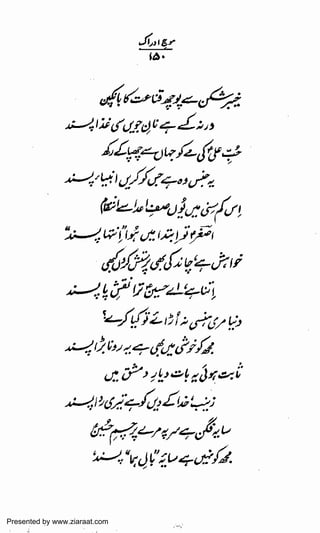 موجِ ادراک
۱۵۰
خیبر شکن سے پوچھ قناعت کا بانکپن
ورنہ کسے ہے نانِ جویں سی غذا پسند
حُبِّ علیؑ کی مے کو جہاں سے چھپا کے رکھ
یہ جنس وہ ہے جس کو کریں انبیاء پسند
اِس کم سِنی میں یُوں صفِ اعدا سے انتقام
اصغرؑ تو ابتدا میں ہُوا "انتہا پسند"
خواہش ہے چاند کی بھی پرستش کروں کبھی
اِتنا ہے اے حسینؑ ترا نقشِ پا پسند
دنیا مری ہنسی نہ اُڑائے تو کیا کرے؟
مجھ کو خوشی میں بھی ہے یہ رونا بڑا پسند
ثابت ہوئی یہ بات دیارِ دمشق میں
زینبؑ خدا کے دیں کو ہے تیری رِدا پسند
سایہ فگن ہے سر پہ مرے پرچمِ حسینؑ
مجھ کو نہیں ہے سایۂ "بالِ ہما" پسند
Presented by www.ziaraat.com